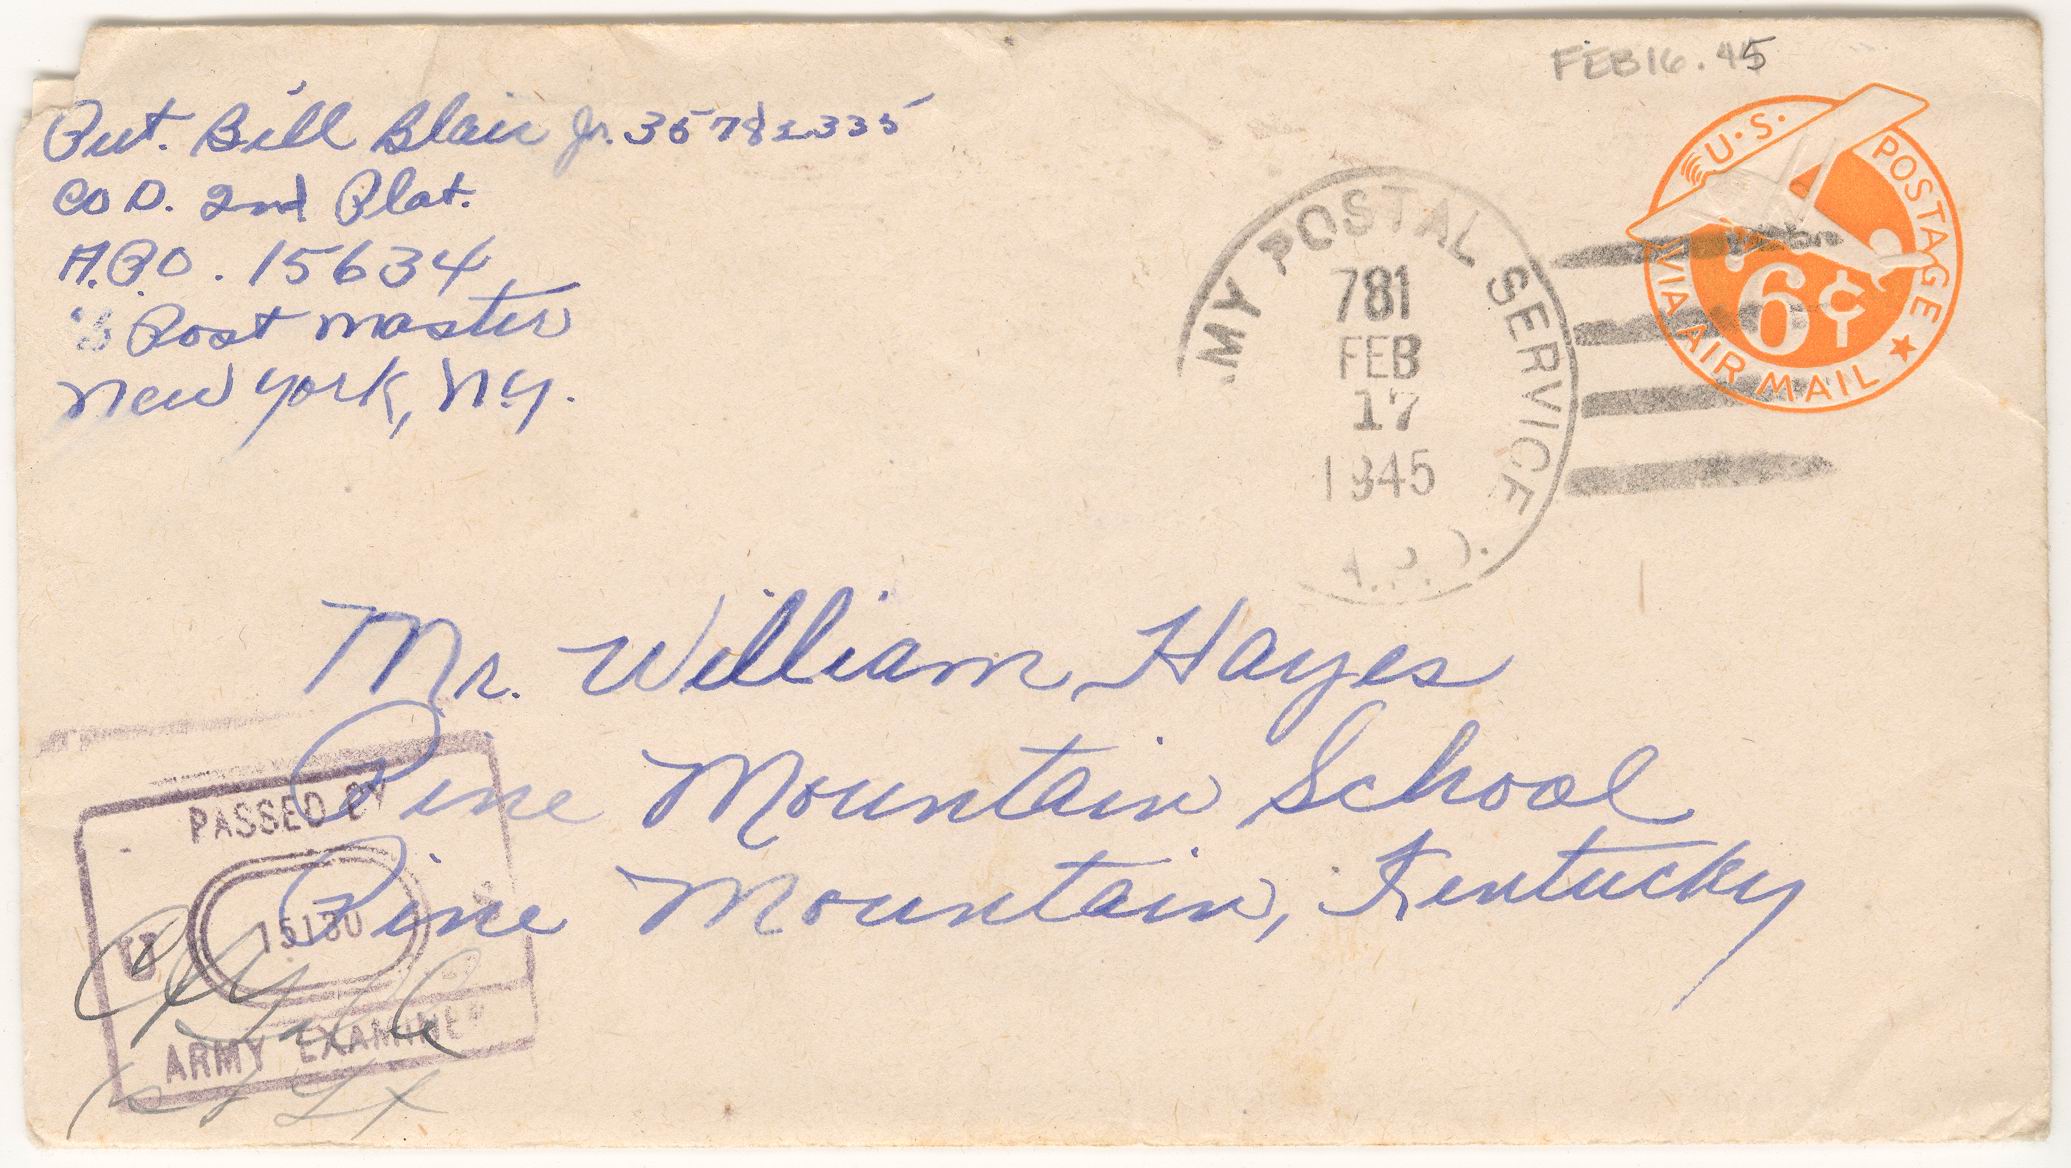 FEB 16. 45
Pvt. Bill Blair Jr. 35782335
Co D. 2nd Plat.
A.P.O. 15634
% Post master
New York, N.Y.
MY POSTAL SERVICE
781
FEB
17
1945
A.P.O.
U.S. POSTAGE
6¢
VIA AIR MAIL
Mr. William Hayes
Pine Mountain School
Pine Mountain, Kentucky
PASSED BY
15130
ARMY EXAMINER